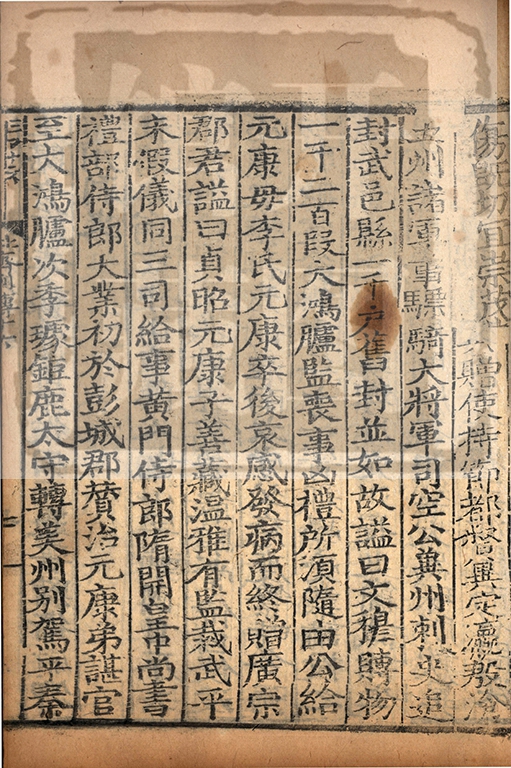 傷既切宜崇茂 贈使持節都督冀定瀛殷滄
五州諸軍事驃騎大將軍司空公冀州刺史追
封武邑縣一千戶舊封並如故謚曰文穆賻物
一千二百段大鴻臚監喪事凶禮所須隨由公給
元康母李氏元康卒後哀感發病而終贈廣宗
郡君謚曰貞昭元康子善藏溫雅有監裁武平
末假儀同三司給事黃門侍郎隋開皇中尚書
禮部侍郎大業初於彭城郡賛治元康弟諶官
至大鴻臚次季璩鉅鹿太守轉冀州別駕平秦